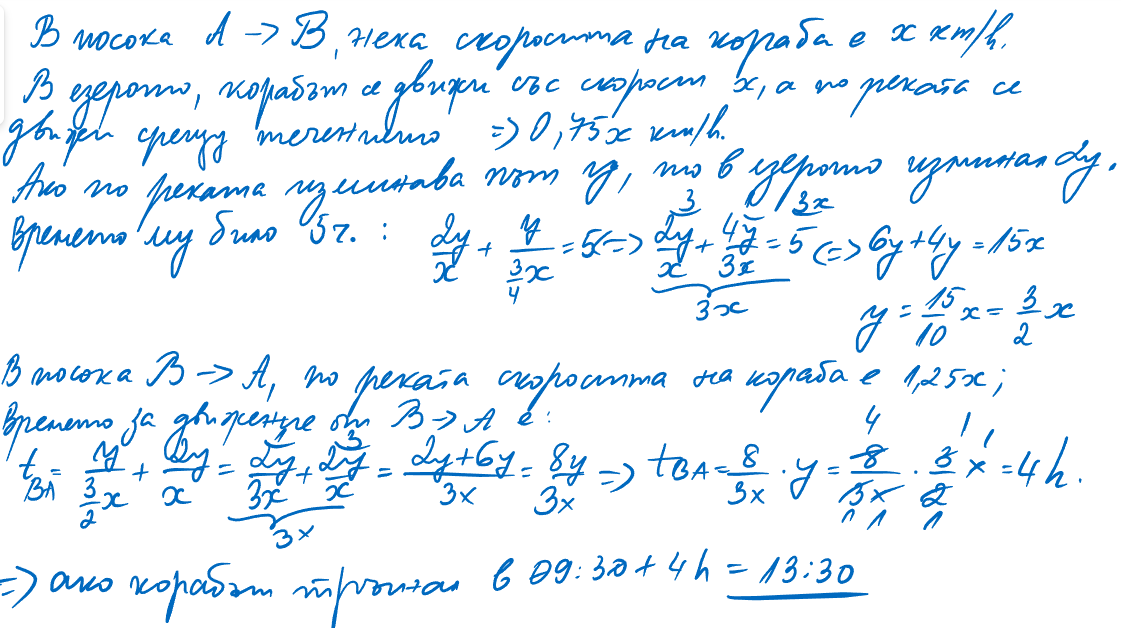 В посока A → B, нека скоростта на кораба е x km/h.
В езерото, корабът се движи със скорост x, а по реката се
движи срещу течението => 0,75x km/h.
Ако по реката изминава път y, то в езерото изминал 2y.
Времето му било 5ч. : 2y/x + y/(3/4 x) = 5 <=> 2y/x + 4y/3x = 5 <=> 6y + 4y = 15x
3 1 3x
3x
y = 15/10 x = 3/2 x
В посока B → A, по реката скоростта на кораба е 1,25x;
Времето за движение от B → A е:
t BA = y/(3/2 x) + 2y/x = 2y/3x + 2y/x = (2y+6y)/3x = 8y/3x => t BA = 8/3x · y = 8/3x · 3/2 x = 4h.
1 3 4 1 1
3x 1 1 1
=> ако корабът тръгнал в 09:30 + 4h = 13:30